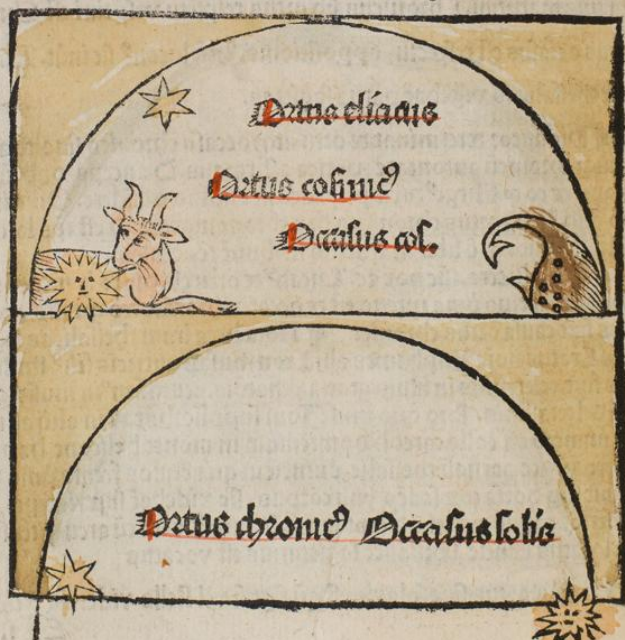 Ortus eliacus
Ortus cosmicꝰ
Occasus cos.
Ortus chronicꝰ Occasus solis